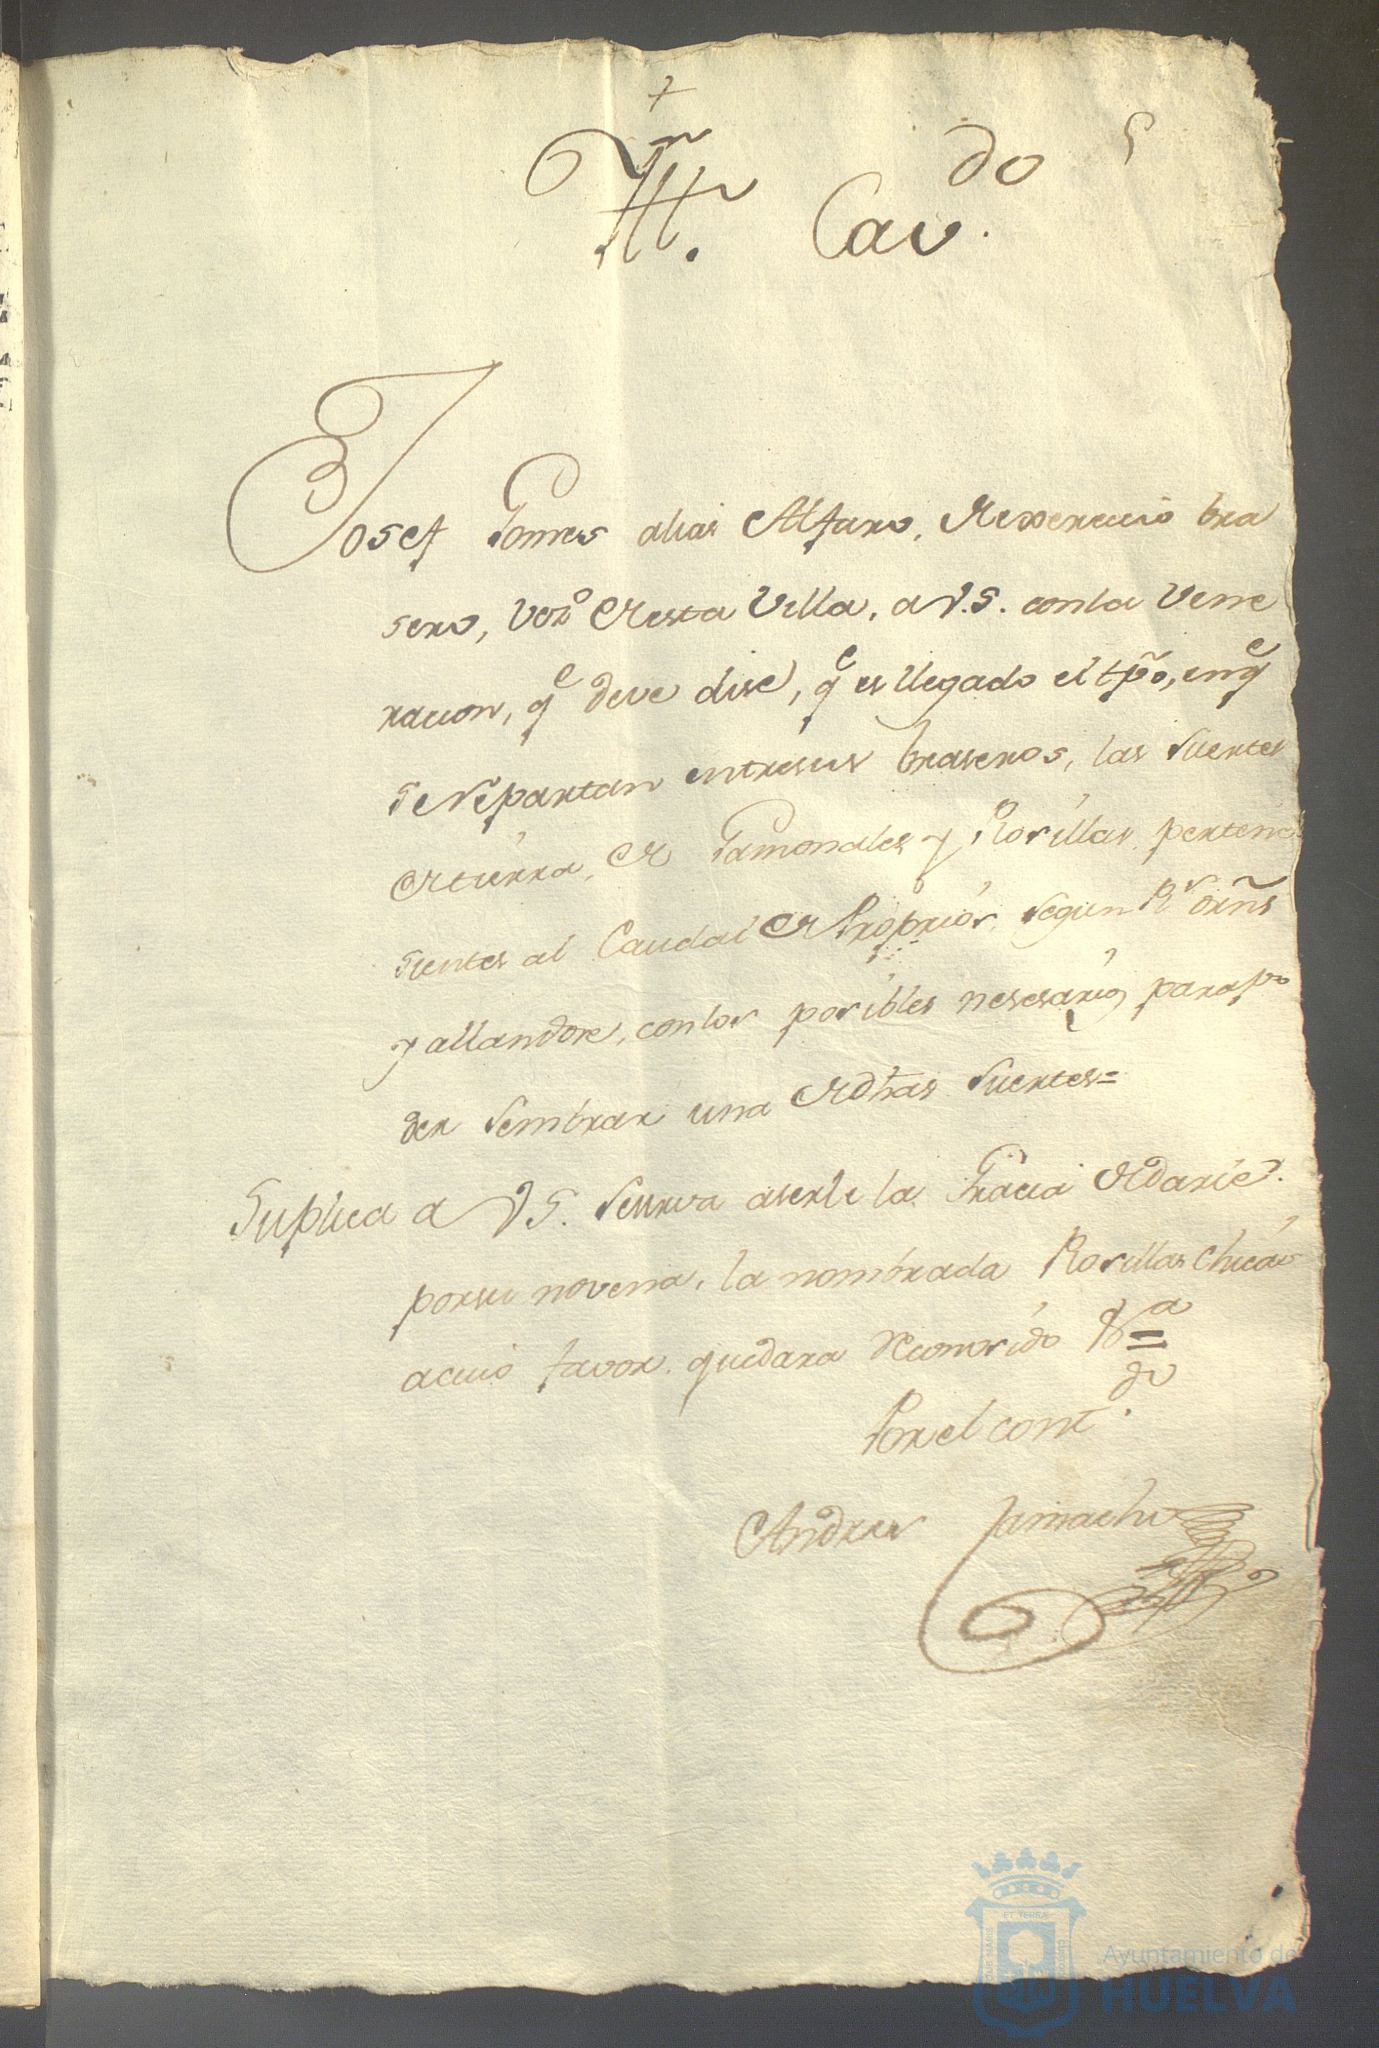 +
Yll.e Cav.do
Josef Gomes alias Alfaro, de exercicio bra
sero, Vez.o de esta Villa, a V.S. con la vene
racion, q.e deve dise, q.e es llegado el tpõ, en q.e
se repartan entre sus braseros, las suertes
de tierra, de Gamonales y Rosillas pertene
sientes al Caudal de Proprios, segun R.s orñs
y allandose, con los posibles nesesarios para po
der sembrar una de dhas suertes=
Suplica a VS. se sirva aserle la Gracia de darle
por su novena, la nombrada Rosillas chicas
a cuio favor quedara reconosido V.a =
Por el cont.do
Andres Camacho
Ayuntamiento de
HUELVA